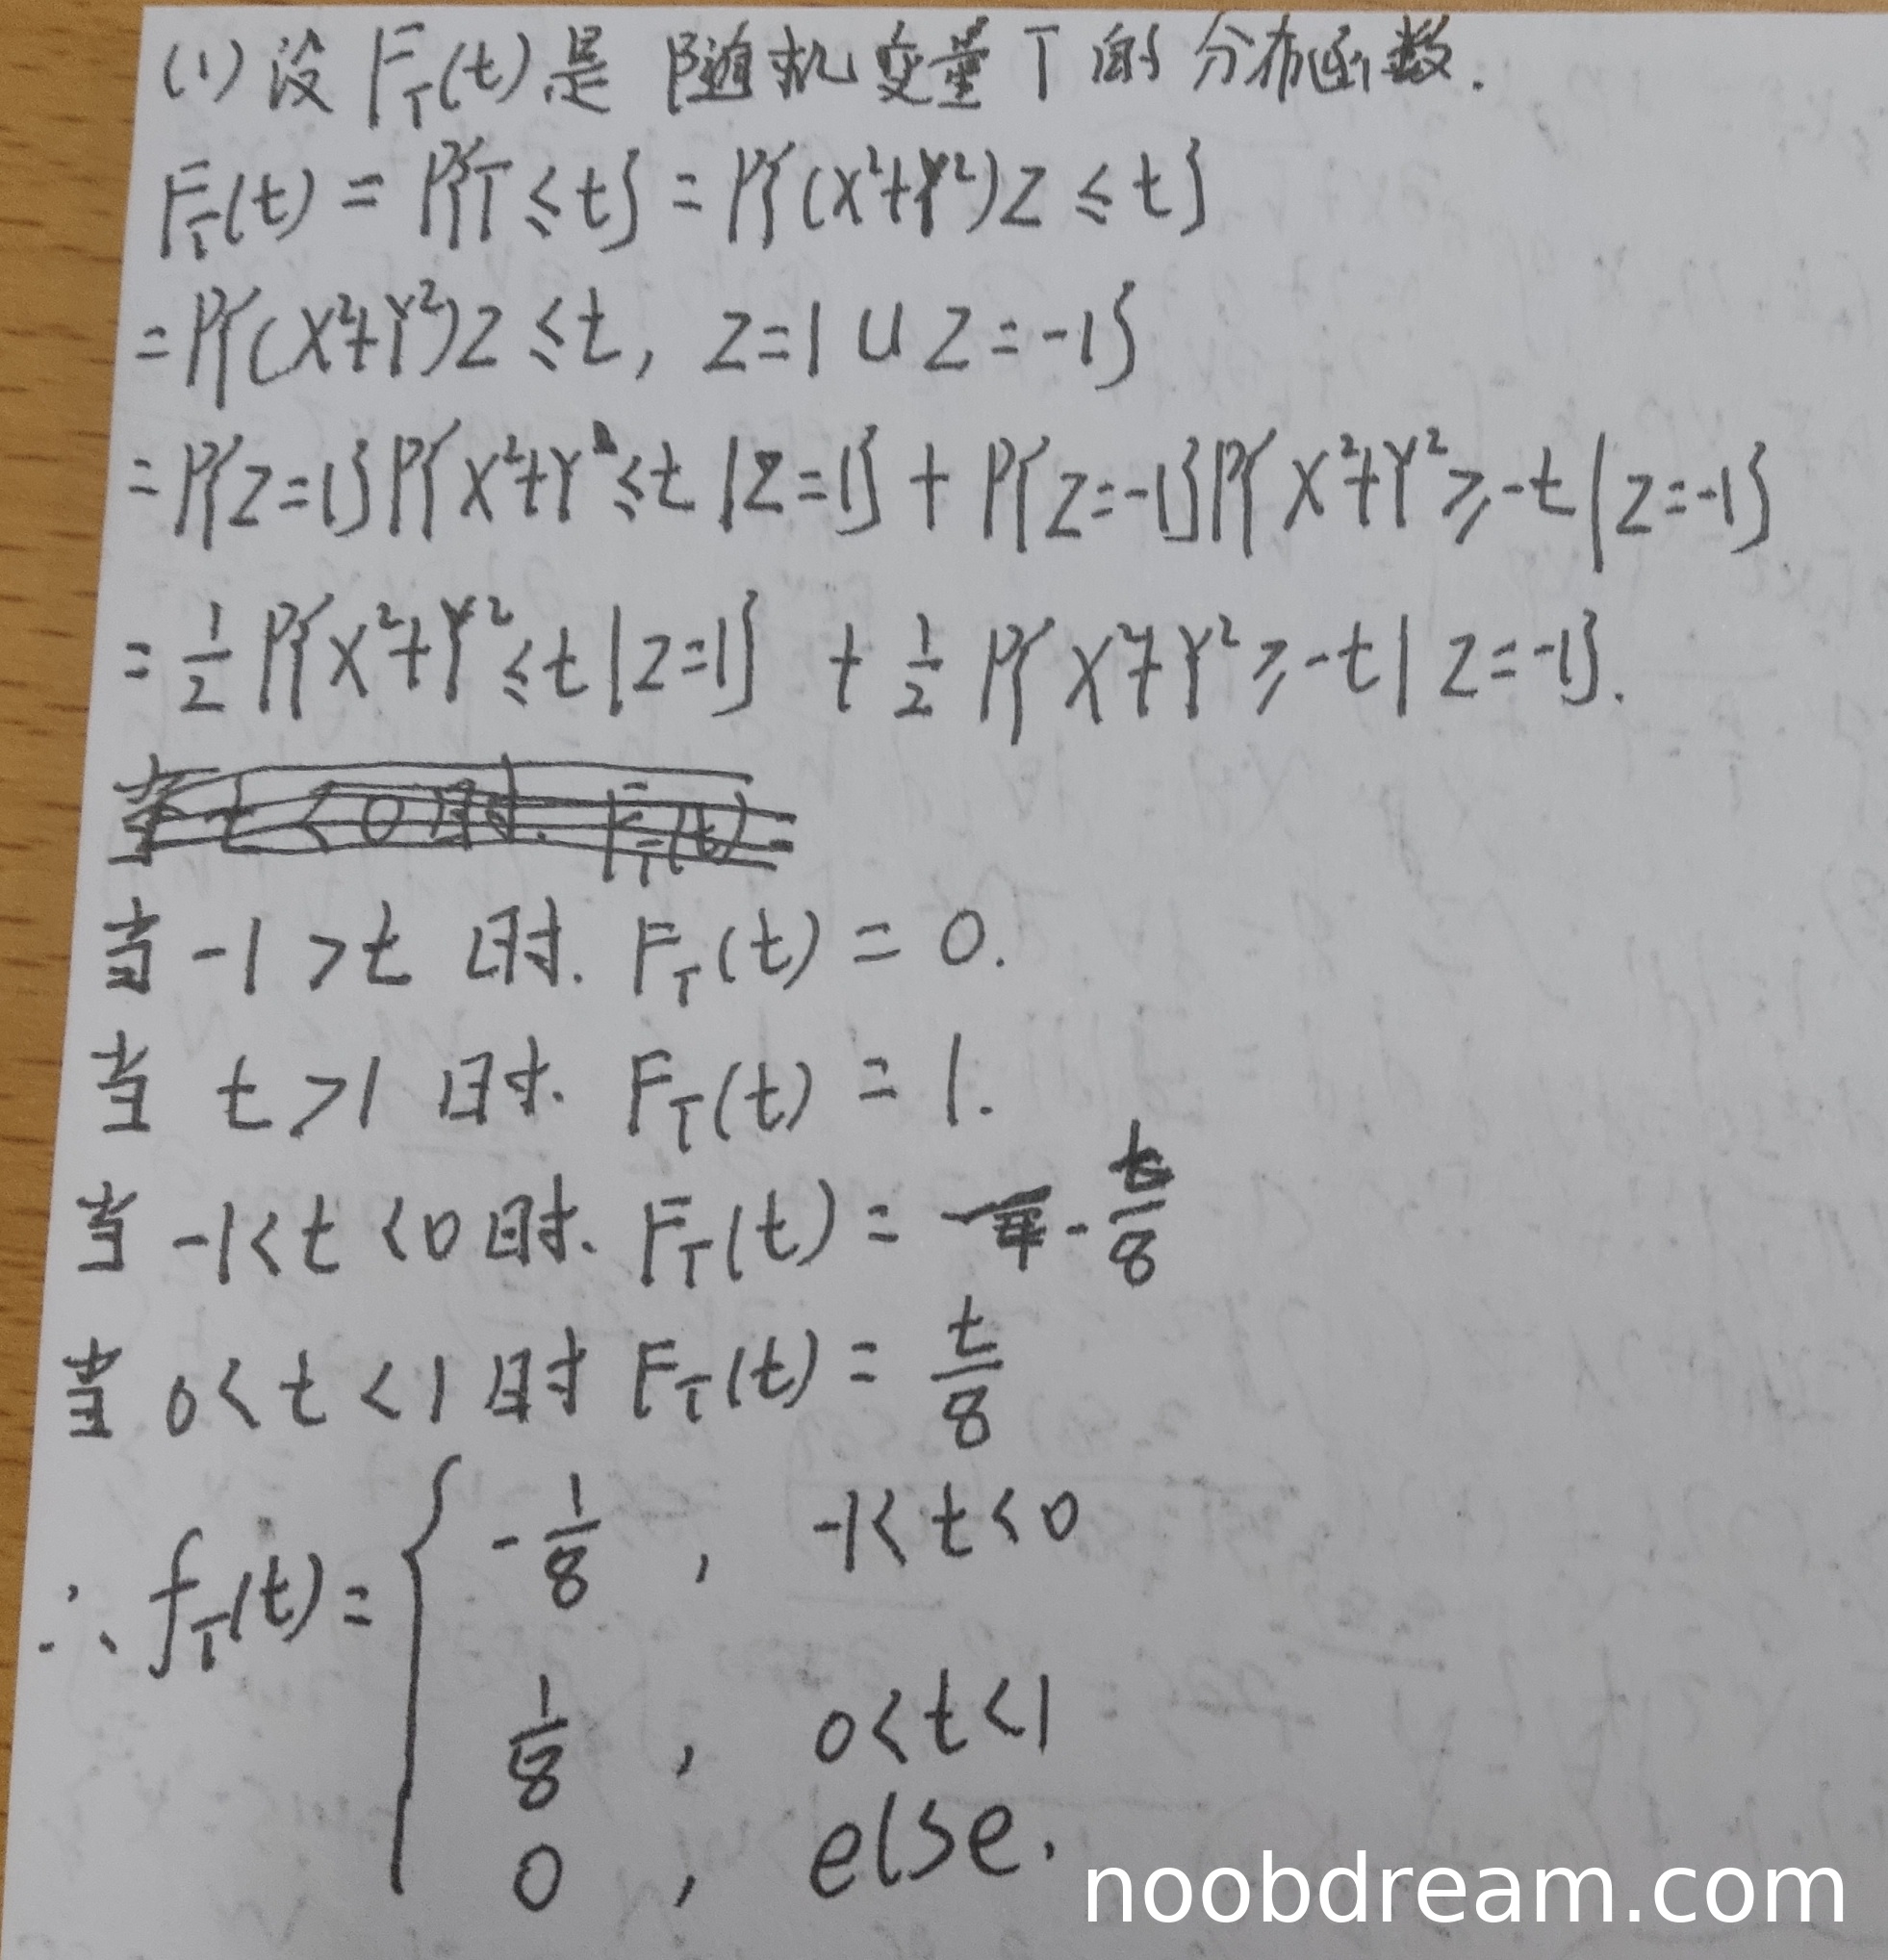 (1) 设 F_T(t) 是 随机变量 T 的 分布函数.
F_T(t) = P{T ≤ t} = P{(X²+Y²)Z ≤ t}
= P{(X²+Y²)Z ≤ t, Z=1 ∪ Z=-1}
= P{Z=1}P{X²+Y²≤t |Z=1} + P{Z=-1}P{X²+Y²≥-t | Z=-1}
= 1/2 P{X²+Y²≤t |Z=1} + 1/2 P{X²+Y²≥-t | Z=-1}.
当 t<0 时. F_T(t)=
当 -1>t 时. F_T(t) = 0.
当 t>1 时. F_T(t) = 1.
当 -1<t<0 时. F_T(t) = - t/8
当 0<t<1 时 F_T(t) = t/8
∴ f_T(t) = { -1/8 , -1<t<0
1/8 , 0<t<1
0 , else.
noobdream.com